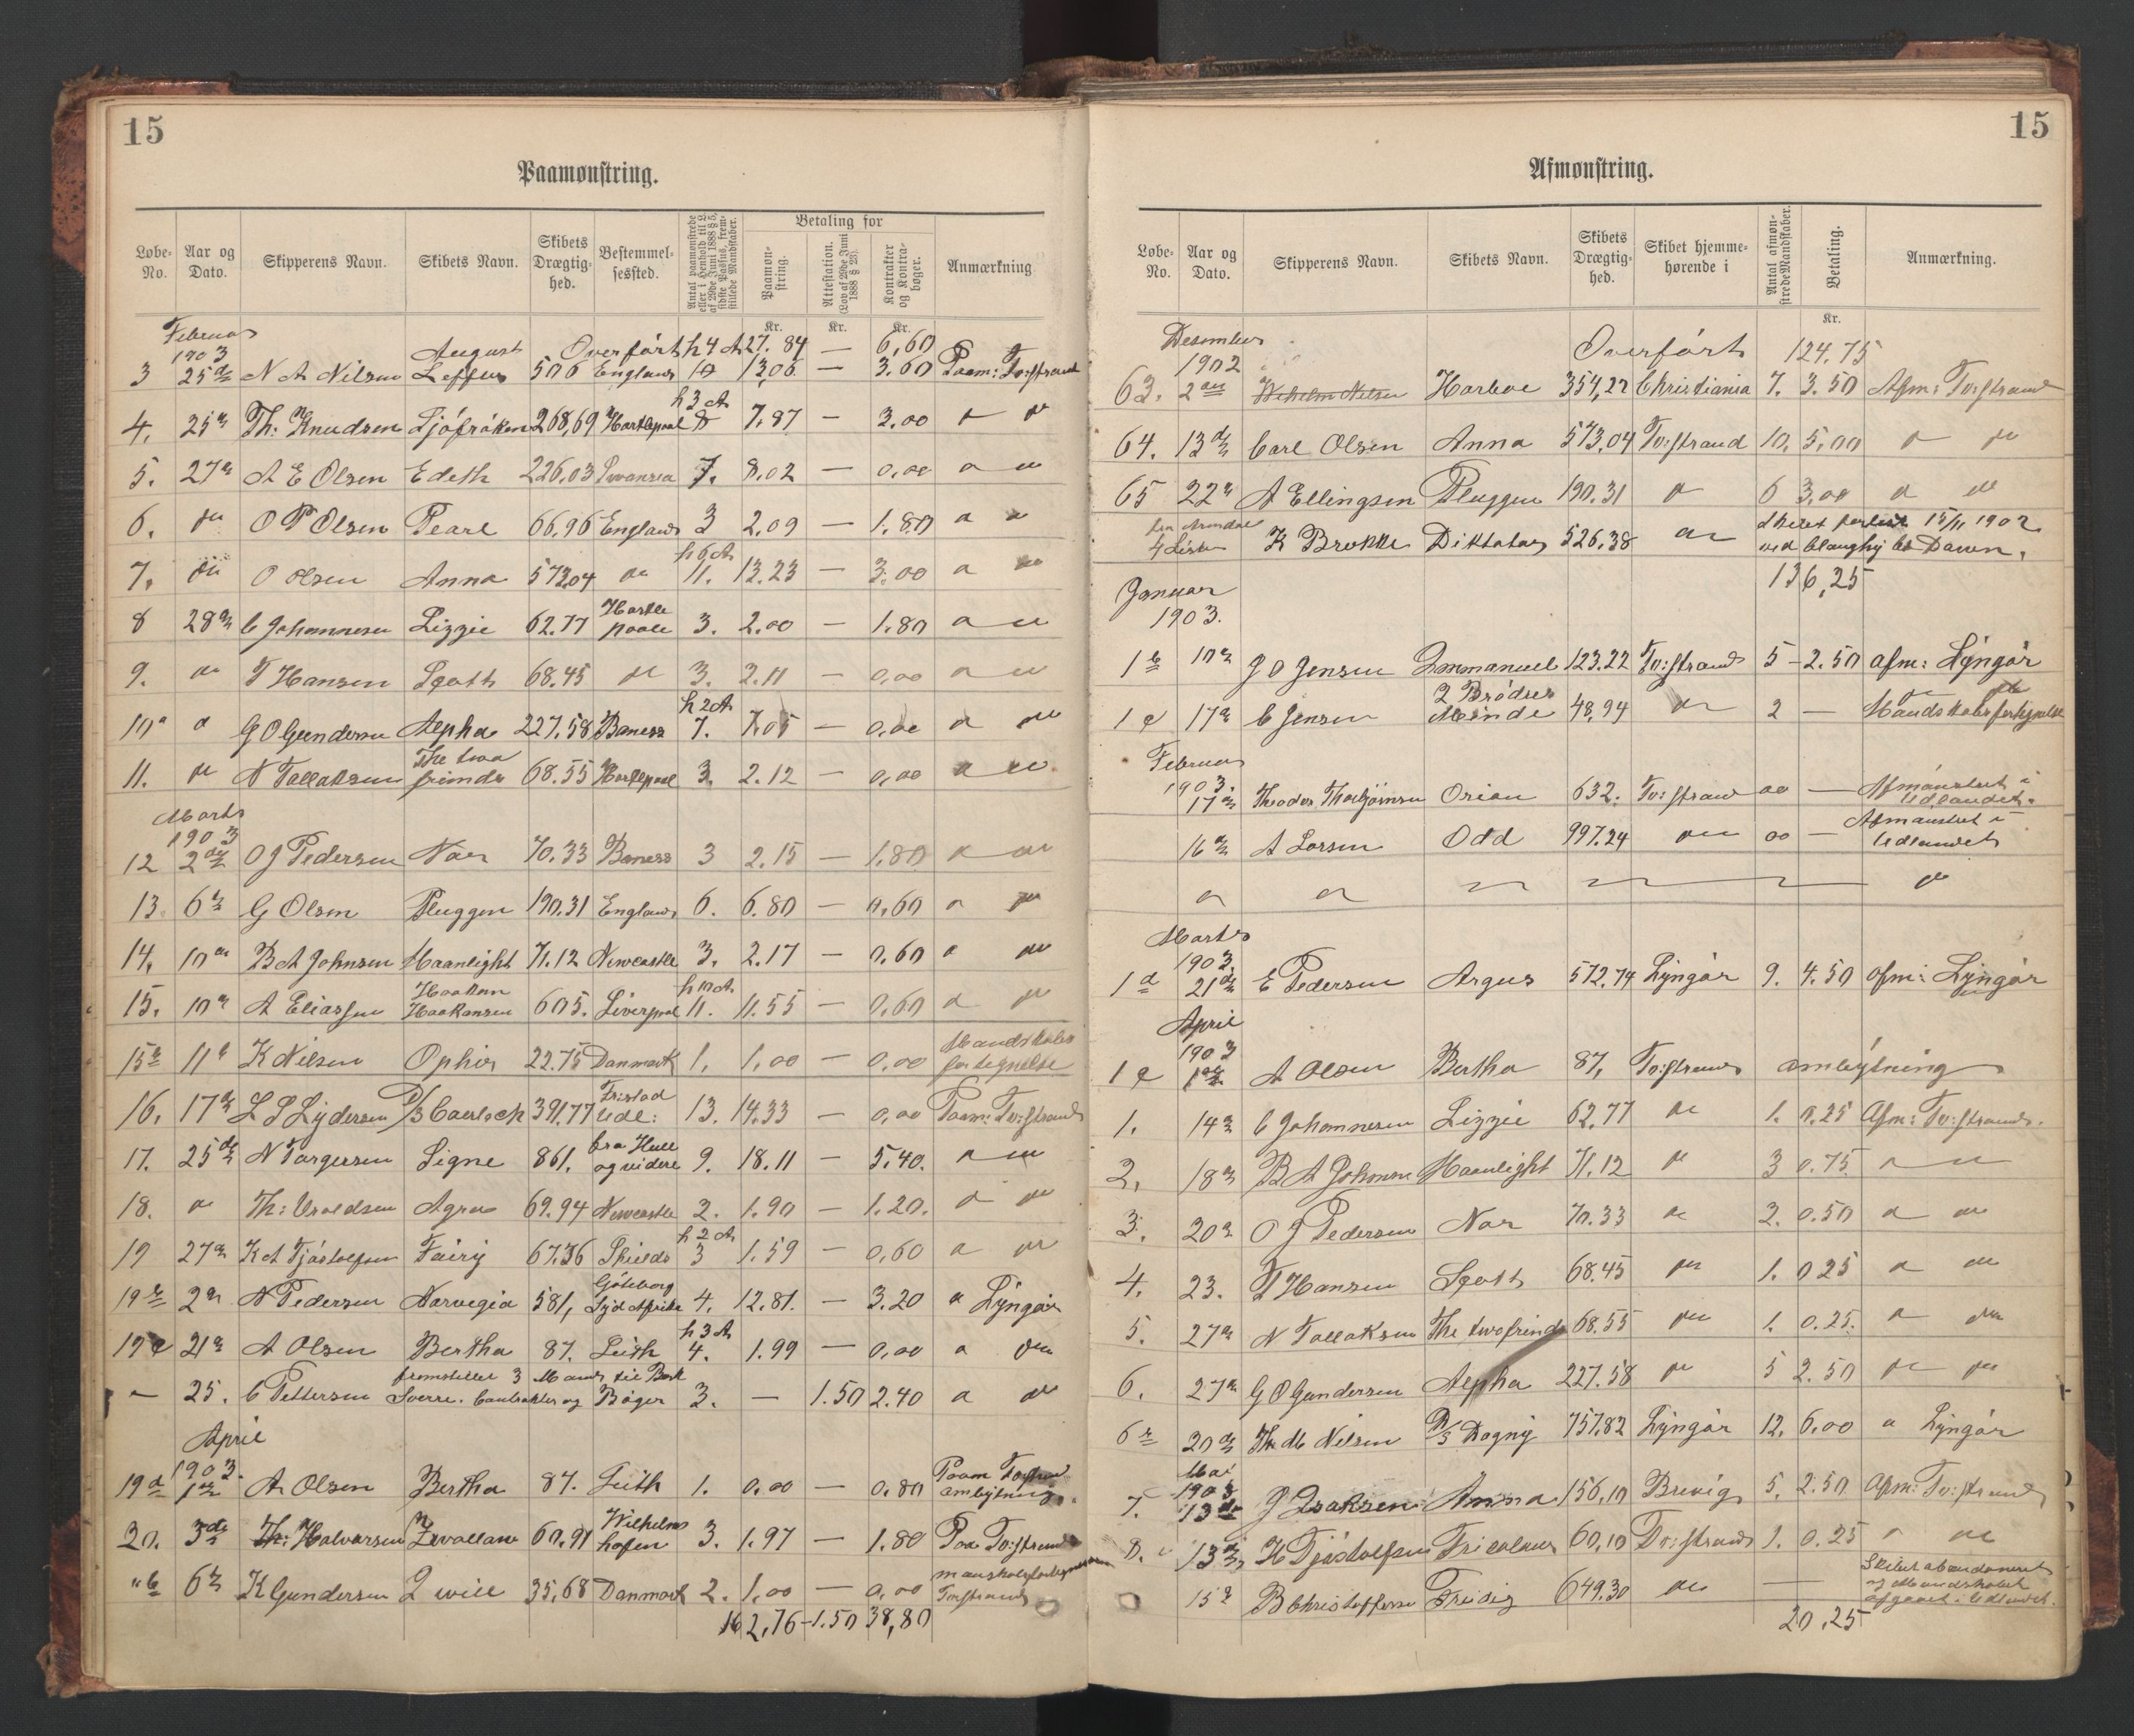 15
Paamønstring.
Løbe-No. Aar og Dato. Skipperens Navn. Skibets Navn. Skibets Drægtig-hed. Bestemmel-sessted. Antal paamønstrede eller i Henhold til L. af 29de Juni 1888 § 5, sidste Passus, frem-stillede Mandskaber. Betaling for Paamøn-string. Attestation. (Lov af 29de Juni 1888 § 23). Kontrakter og Kontra-bøger. Anmærkning
Kr. Kr. Kr.
Februar 1903 Overført 27.84 — 6,60
3 25de N A Nilsen August Leffler 506 England h 4 A 10 13,06 — 3.60 Paam: Tv:strand
4. 25 Th: Knudsen Sjöfröken 268,69 Hartlepool h 3 A 8 7.87 — 3.00
5. 27 A E Olsen Edeth 226.03 Swansea 7. 8.02 — 0,00
6. O P Olsen Pearl 66,96 England 3 2.09 — 1.80
7. O Olsen Anna 573.04 h 6 A 11. 13.23 — 3.00
8 28 C Johannesen Lizzie 62.77 Hartle poole 3. 2.00 — 1.80
9. T Hansen Scott 68.45 3. 2.11 — 0,00
10 G O Gundersen Alpha 227.58 Boness h 2 A 7. 7.05 — 0,00
11. N Tallaksen The two friends 68.55 Hartlepool 3. 2.12 — 0,00
Marts 1903
12 2den O J Pedersen Nor 70.33 Boness 3 2.15 — 1.80
13. 6 G Olsen Pluggen 190.31 England 6. 6.80 — 0,60
14. 10 B A Johnsen Haanlight 71.12 Newcastle 3. 2.17 — 0.60
15. 10 A Eliassen Haakon Haakonsen 605. Liverpool h 10 A 11. 11.55 — 0,60
15b 11 K Nilsen Ophir 22.75 Danmark 1. 1,00 — 0.00 Mandskabs fortegnelse
16. 17 L S Lydersen D/S Caerloch 391.77 Fristad Udl: 13. 14.33 — 0,00 Paam: Tv:strand
17. 25de N Torgersen Signe 861. fra Hull og videre 9. 18.11 — 5.40.
18. Th: Uroldsen Agra 69.94 Newcastle 2. 1.90 — 1.20.
19 27 K A Tjöstolfsen Fairy 67.36 Shields h 2 A 3 1.59 — 0,60
19 2 N Pedersen Norvegia 581, Göteborg Syd Afrika 4. 12.81. — 3.20 Lyngör
19 21 A Olsen Bertha 87. Leith h 3 A 4. 1.99 — 0,00
25. C Pettersen fremstillet 3 Mand til Bark Sverre. Contrakter og Böger 3. — 1.50 2.40
April 1903.
19d 1 A Olsen Bertha 87. Leith 1. 0,00 — 0.80 Paam ombytning
20. 3de Th: Halvorsen 60.91 Wilhelms hafen 3. 1.97 — 1.80 Paa Tv:strand
6 K Gundersen I will 35,68 Danmark 2. 1,00 — 0,00
162,76 - 1.50 38,80
15
Afmønstring.
Løbe-No. Aar og Dato. Skipperens Navn. Skibets Navn. Skibets Drægtig-hed. Skibet hjemme-hørende i Antal afmøn-strede Mandskaber. Betaling. Anmærkning.
Kr.
Desember 1902 Overført 124.75
63. 2 Wilhelm Nilsen Harboe 354,22 Christiania 7. 3.50 Afm: Tv:strand
64. 13 Carl Olsen Anna 573.04 Tv:strand 10. 5,00
65 22 A Ellingsen Pluggen 190.31 6 3,00
fra Arendal 4 Liste K Brokke Diktator 526.38 Skibet forlist 15/11 1902
136,25
Januar 1903.
1 10 J O Jensen Immanuel 123.22 Tv:strand 5 - 2.50 Afm: Lyngör
17 C Jensen 2 Brødres Minde 48,94 2 — Mandskabsfortegnelse
Februar 1903.
17 Theodor Thorbjörnsen Orion 632. Tv:strand 00 — Afmönstret i Udlandet.
16 A Larsen Odd 997.24 00 — Afmönstret i Udlandet
Marts 1903
1 21 E Pedersen Argus 572.74 Lyngör 9. 4.50 Afm: Lyngör
April 1903
1 A Olsen Bertha 87, Tv:strand ombytning
1. 14 C Johannesen Lizzie 62.77 1. 0.25 Afm: Tv:strand.
2. 18 B A Johnsen Haanlight 71.12 3 0.75
3. 20 O J Pedersen Nor 70.33 2. 0.50
4. 23. T Hansen Scott 68.45 1. 0 25
5. 27 N Tallaksen The two friends 68.55 1. 0.25.
6. 27 G O Gundersen Alpha 227.58 5 2.50
6 20 Th M Nilsen D/S Dagny 757.82 Lyngör 12. 6.00 Lyngör
Mai 1903
7. 13 J Isaksen Anna 156,10 Brevig 5. 2.50 Afm: Tv:strand
8. 13 K Tjöstolfsen Tricolour 60,10 Tv:strand 1. 0.25
15 B Christoffersen Freidig 649.30 — Skibet abandoneret og Mandskabet afgaaet i Udlandet.
20.25